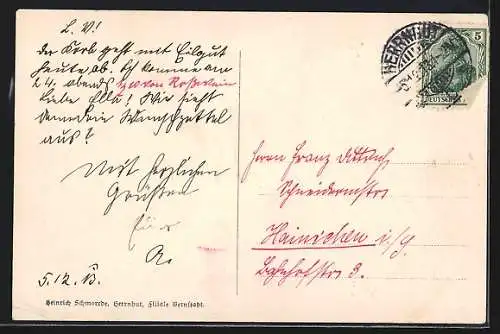 L. V!
der Korb geht mit Eilgut
heute ab. Ich komme am
24. abends 7 von Roßwein
liebe Ella! Wie sieht
denn Dein Wunschzettel
aus?
Mit herzlichen
Grüßen
5. 12. 13.
Heinrich Schmorede, Herrnhut, Filiale Bernstadt.
HERRNHUT
5
DEUTSCHES
Herrn Franz Dittrich,
Schneidermstr.
Hainichen i./S.
Bahnhofstr. 3.